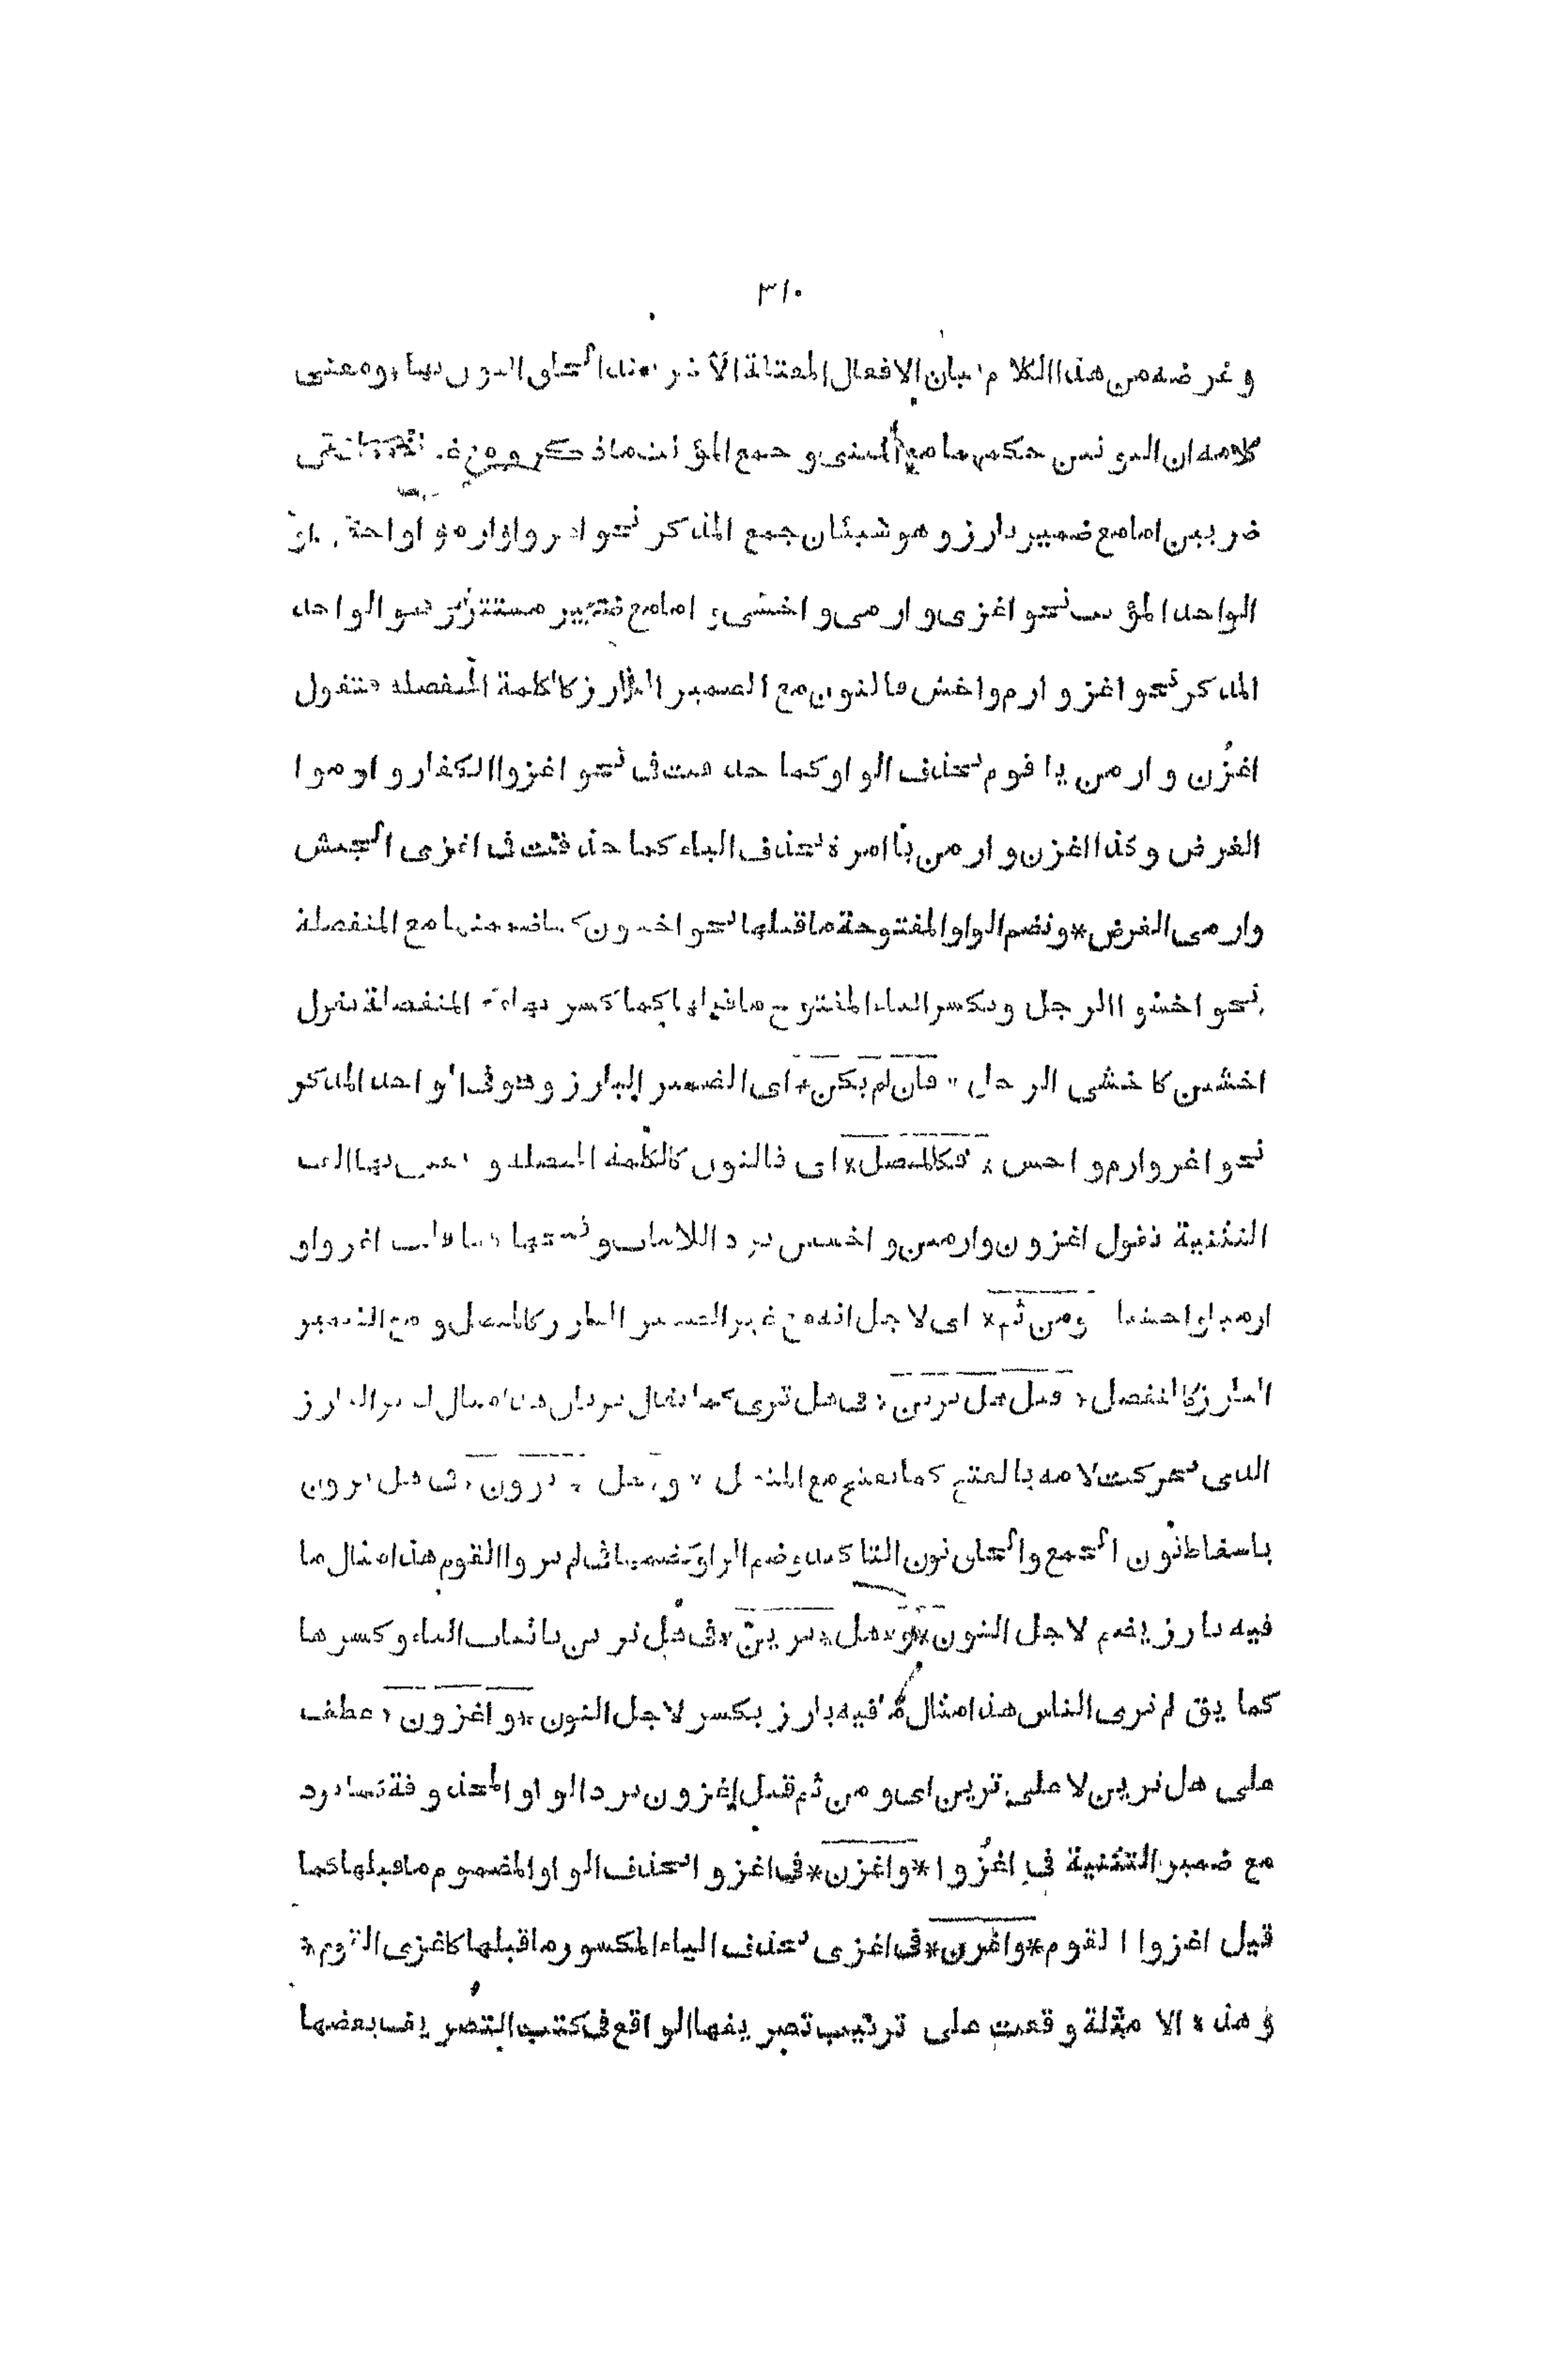 ٣١٠
وغرضه من هذا الكلام بيان الافعال المعتلة الآخر عند الحاق النون بها ومعنى
كلامه ان النونين حكمهما مع المثنى وجمع المؤنث ما ذكر ومع
ضربين اما مع ضمير بارز وهو شيئان جمع المذكر نحو اغزوا وارموا واخشوا
الواحد المؤنث نحو اغزى وارمى واخشى و اما مع ضمير مستتر نحو الواحد
المذكر نحو اغز وارم واخش فالنون مع الضمير البارز كالكلمة المنفصلة فتقول
اغزُن وارمن يا قوم بحذف الواو كما حذفت فى نحو اغزوا الكفار وارموا
الغرض وكذا اغزن وارمن يا امرة بحذف الياء كما حذفت فى اغزى الجيش
وارمى الغرض * ونضم الواو المفتوحة ما قبلها نحو اخشون كما ضممتها مع المنفصلة
نحو اخشوا الرجل وتكسر الياء المفتوح ما قبلها كما كسرتها مع المنفصلة تقول
اخشين كاخشى الرجل * فان لم يكن * اى الضمير البارز وهو فى الواحد المذكر
نحو اغز وارم واخش * فكالمتصل * اى فالنون كالكلمة المتصلة و بها الف
التثنية فتقول اغزون وارمين واخشين برد اللامات وفتحها كما قلت اغزوا و
ارميا واخشيا ومن ثم * اى لاجل انه مع غير الضمير البارز كالمتصل ومع الضمير
البارز كالمنفصل * قيل هل ترين * فى هل ترى كما يقال تريان هذا مثال لغير البارز
الذى تحركت لامه بالفتح كما تفتح مع المتصل * و * هل * ترون * فى هل ترون
باسقاط نون الجمع والحاق نون التاكيد وضم الواو كضمها فى لم تروا القوم هذا مثال ما
فيه بارز يضم لاجل النون * و * هل * ترينّ * فى هل ترين باثبات الياء وكسرها
كما يق لم ترى الناس هذا مثال ما فيه بارز يكسر لاجل النون * واغزون * عطف
على هل ترين لا على ترين اى ومن ثم قيل اغزون برد الواو المحذوفة كما ترد
مع ضمير التثنية فى اغزُوا * واغزن * فى اغزوا بحذف الواو المضموم ما قبلها كما
قيل اغزوا القوم * واغزن * فى اغزى بحذف الياء المكسور ما قبلها كاغزى القوم *
وهذه الامثلة وقعت على ترتيب تصريفها الواقع فى كتب التصريف بعضها